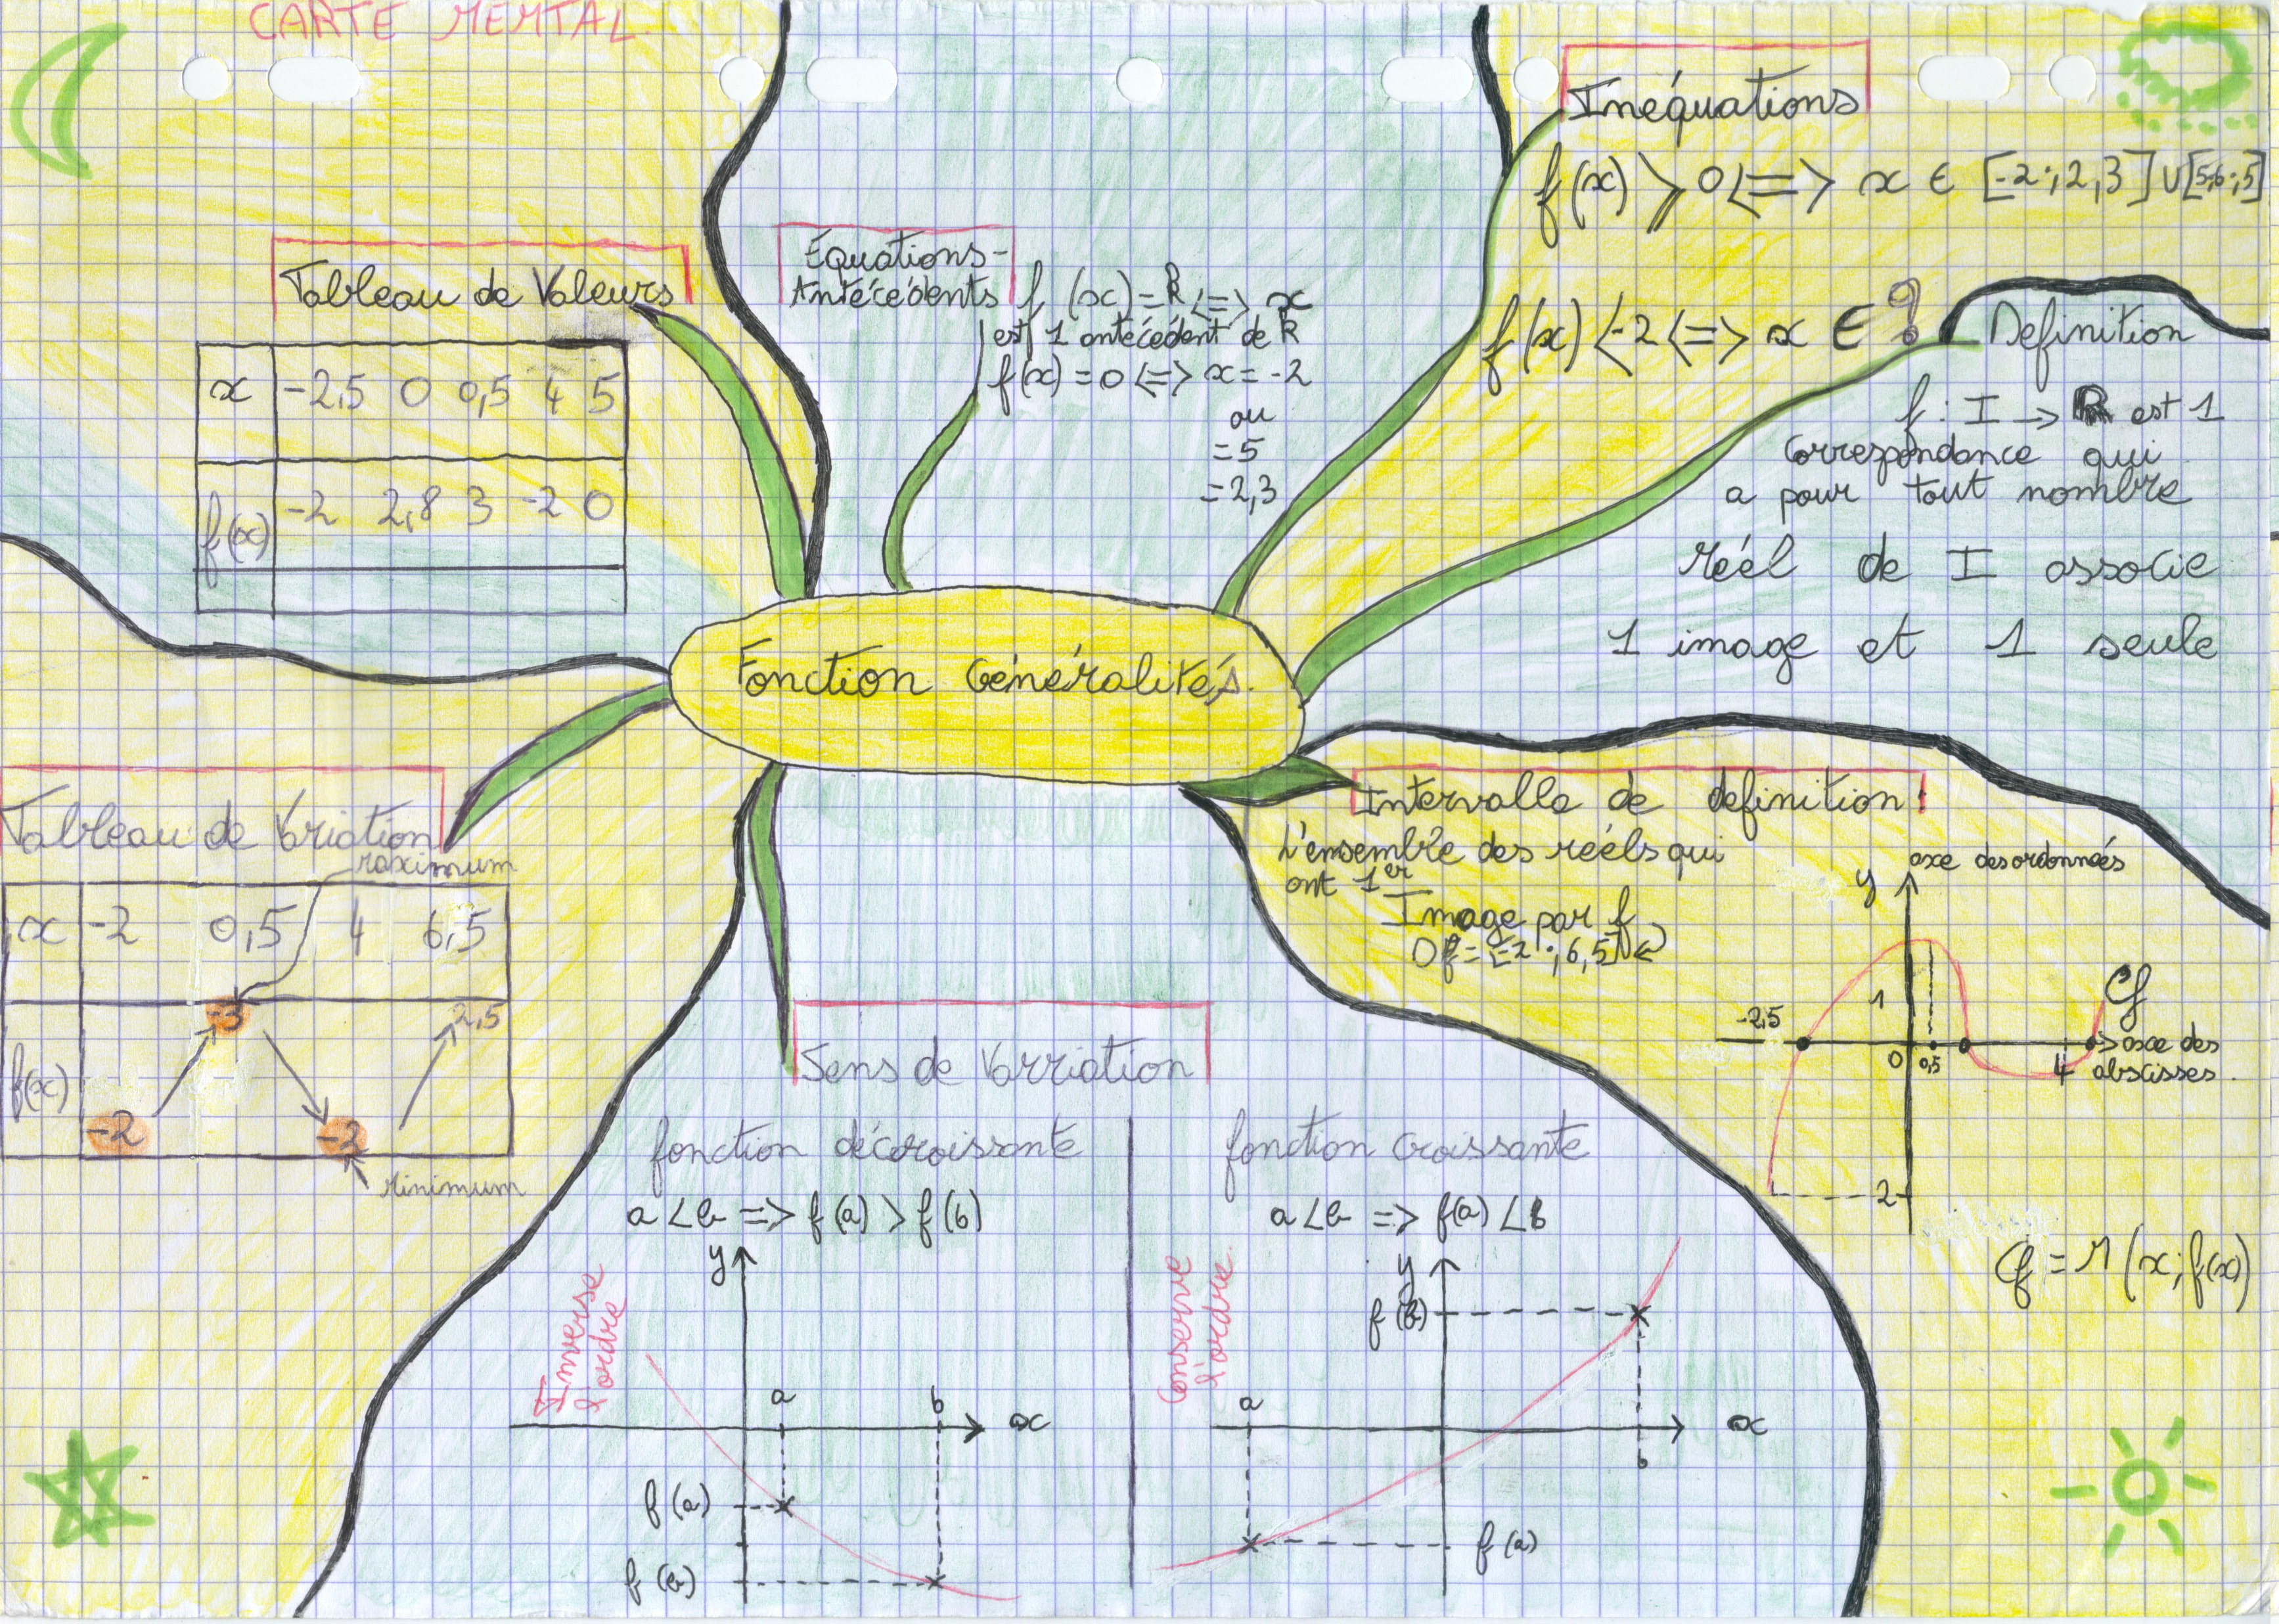 CARTE MEMTAL.
Tableau de Valeurs
x -2,5 0 0,5 4 5
f(x) -2 2,8 3 -2 0
Équations-
Antécédents
f (x) = R <=> x
est 1 antécédent de R
f(x) = 0 <=> x = -2
ou
= 5
= 2,3
Inéquations
f(x) ⩾ 0 <=> x ∈ [-2 ; 2,3] ∪ [5;6;5]
f(x) < -2 <=> x ∈ ?
Définition
f : I → R est 1
correspondance qui
a pour tout nombre
réel de I associe
1 image et 1 seule
Fonction Généralités.
Intervalle de définition :
L'ensemble des réels qui
ont 1er
Image par f
Df = [-2 ; 6,5]
axe des ordonnées
y
1
-2,5
0
0,5
4
Cf
axe des
abscisses.
2
Cf = M (x ; f(x)
Tableau de Variation
maximum
x -2 0,5 4 6,5
f(x) -2 -3 -2 2,5
minimum
Sens de Varriation
fonction décoroissante
a < b => f(a) > f(b)
Inverse
l'ordre
y
a
b
x
f(a)
f(b)
fonction croissante
a < b => f(a) < b
Conserve
l'ordre.
y
f(b)
a
x
b
f(a)